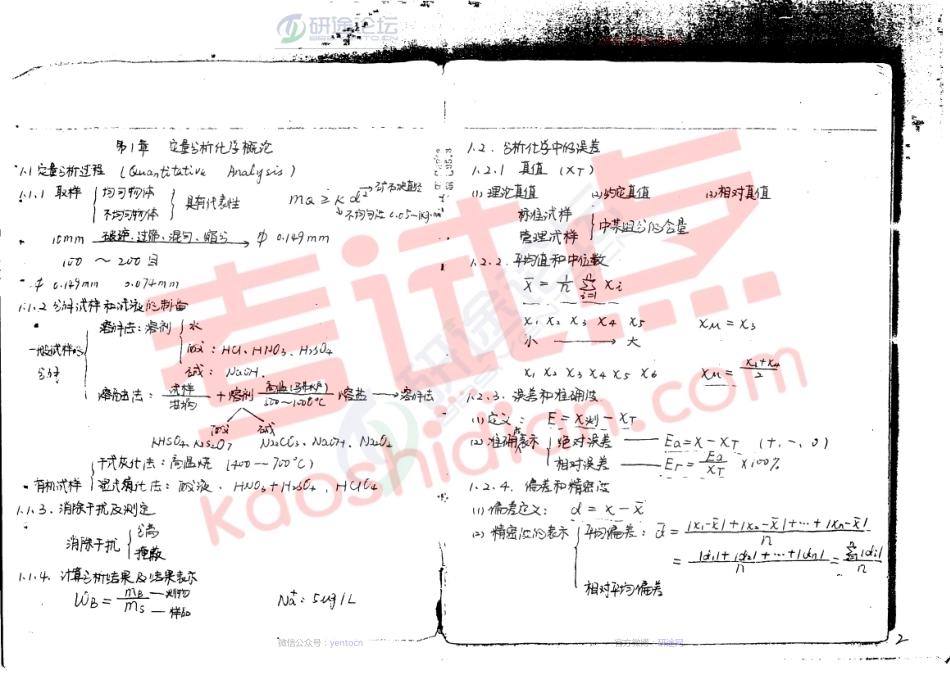 研途论坛
第1章 定量分析化学概论
1.1 定量分析过程 (Quantitative Analysis)
1.1.1 取样 { 均匀物体 不均匀物体 } 具有代表性 ma ≥ k d² → 矿石块直径
→ 不均匀法 0.05~1kg·m
10mm 破碎、过筛、混匀、缩分 → φ 0.149mm
100 ~ 200目
φ 0.149mm 0.074mm
1.1.2 分解试样和试液的制备
一般试样的分解
溶解法:溶剂 { 水
酸:HCl、HNO₃、H₂SO₄
碱:NaOH.
熔融法: 试样 + 溶剂 高温 → 熔盐 → 溶解法
酸 碱
KHSO₄、K₂S₂O₇ Na₂CO₃、NaOH、Na₂O₂
有机试样
干式灰化法:高温烧 (400~700°C)
湿式消化法:酸液、HNO₃+H₂SO₄、HClO₄
1.1.3. 消除干扰及测定
消除干扰 { 分离
掩蔽
1.1.4. 计算分析结果及结果表示
W_B = m_B / m_S —测物 —样品 Na⁺: 5ug/L
1.2. 分析化学中的误差
1.2.1 真值 (X_T)
(1) 理论真值 (2) 约定真值 (3) 相对真值
标准试样
管理试样 } 中某组分的含量
1.2.2. 平均值和中位数
x̄ = 1/n Σ(i=1→n) xᵢ
x₁ x₂ x₃ x₄ x₅ x_M = x₃
小 → 大
x₁ x₂ x₃ x₄ x₅ x₆ x_M = (x₃+x₄)/2
1.2.3. 误差和准确度
(1) 定义: E = x测 - x_T
(2) 准确度表示 { 绝对误差 — Ea = x - x_T (+, -, 0)
相对误差 — Er = Ea/x_T × 100%
1.2.4. 偏差和精密度
(1) 偏差定义: d = x - x̄
(2) 精密度的表示 { 平均偏差: d̄ = (|x₁-x̄|+|x₂-x̄|+…+|xn-x̄|)/n
= (|d₁|+|d₂|+…+|dn|)/n = Σ|dᵢ|/n
相对平均偏差
考试点
kaoshidian.com
微信公众号:yentocn
官方微博:研途网
2